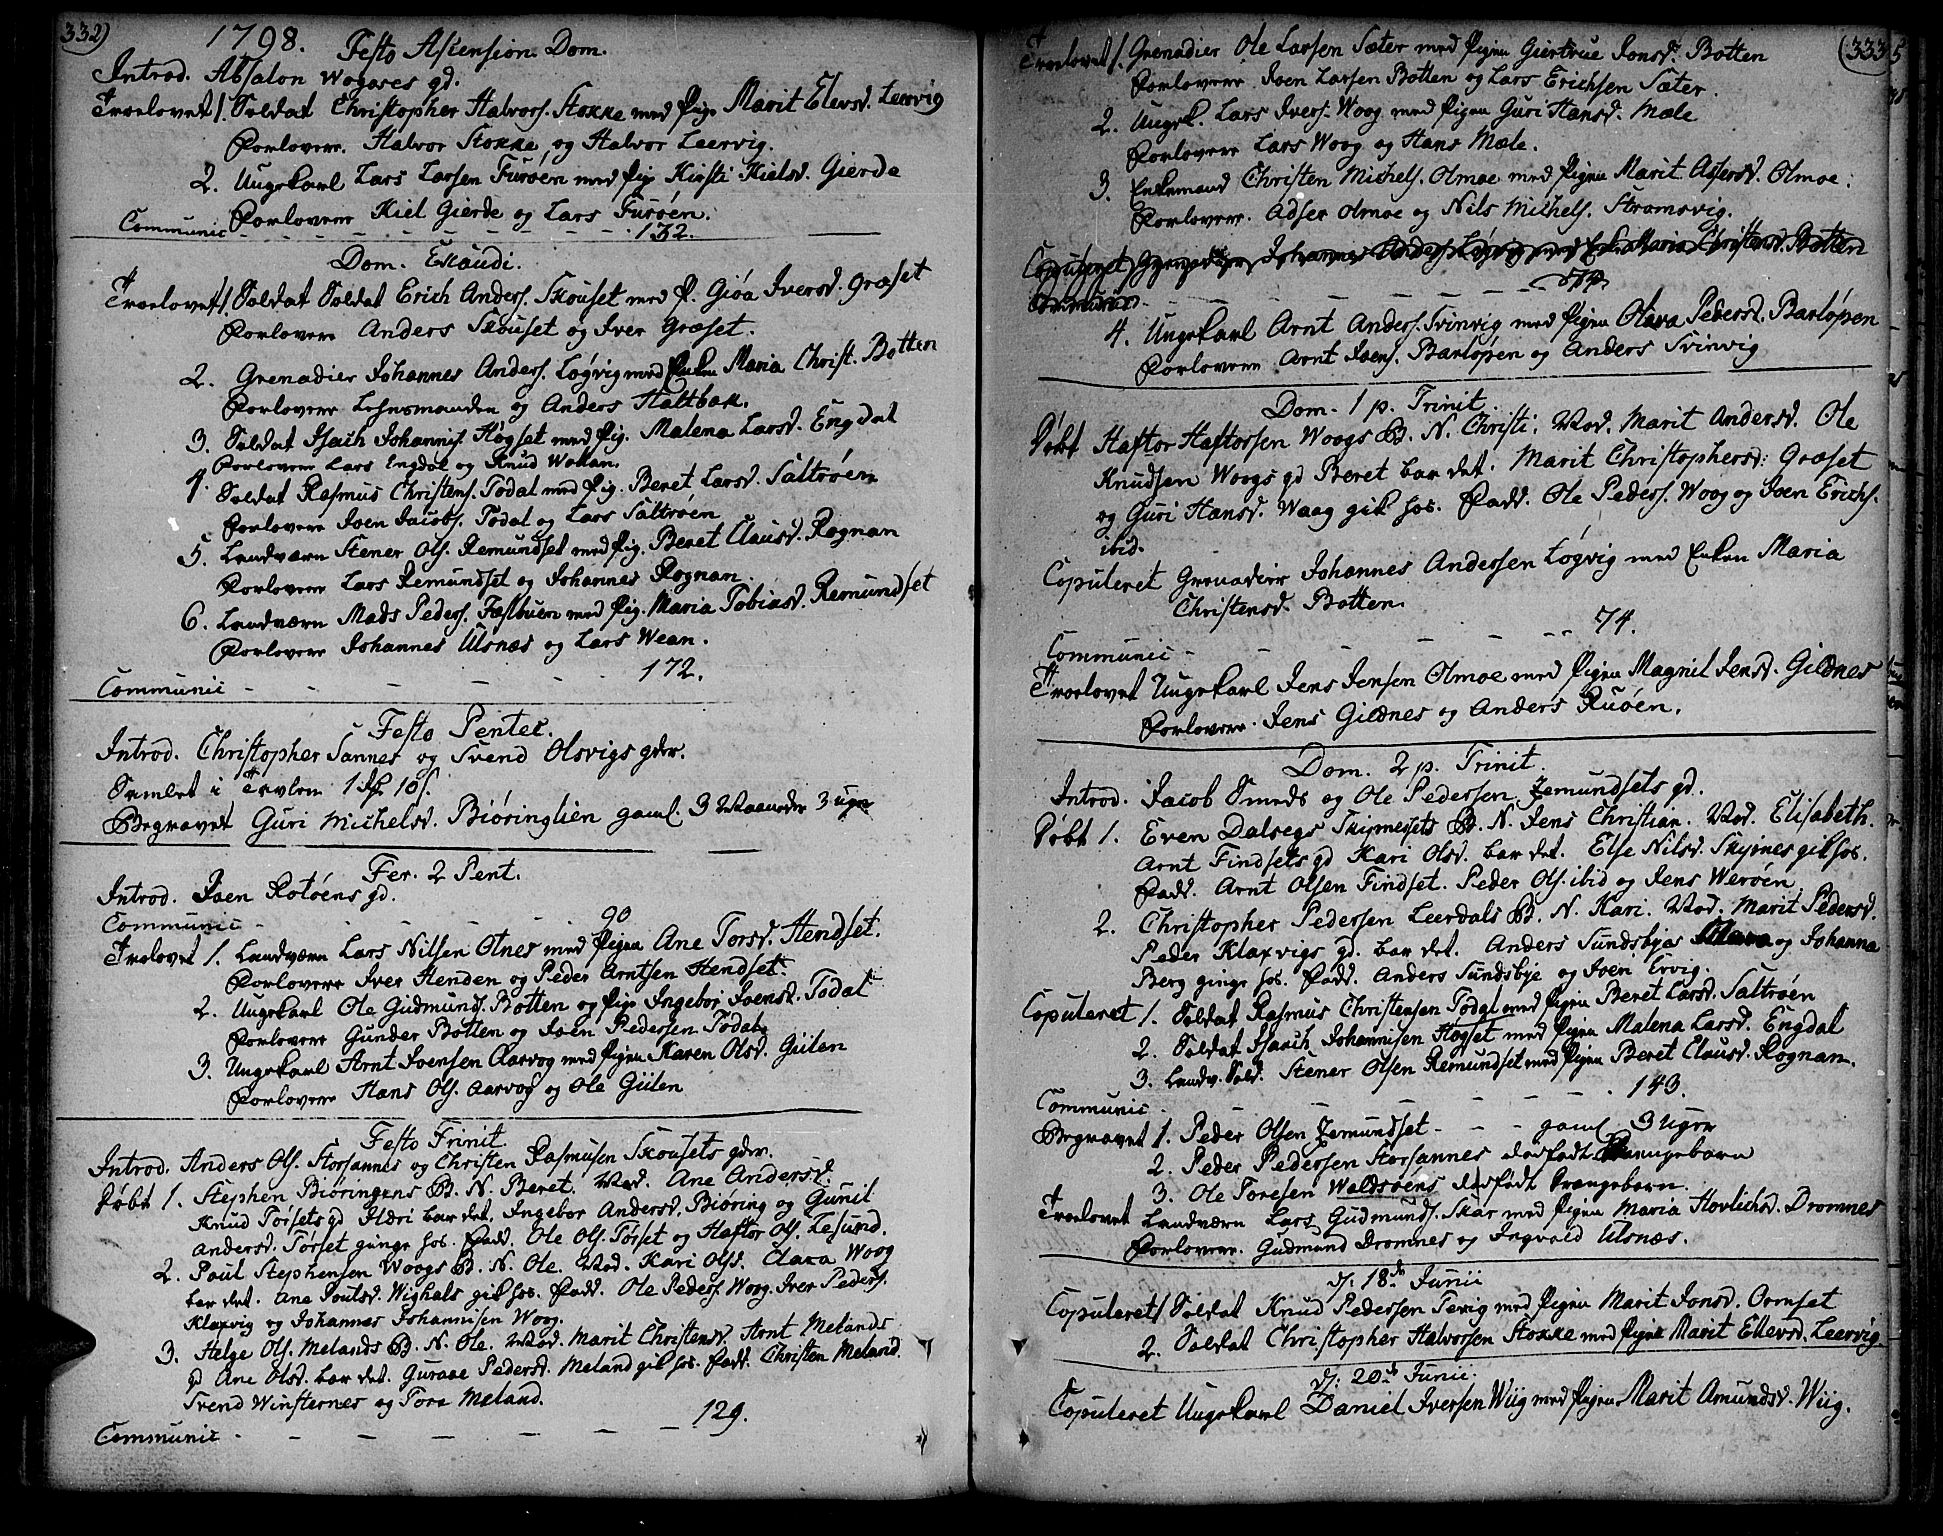 332)
1798. Festo Ascension. Dom.
Introd. Absalon Wogøses gd.
Troelovet 1. Soldat Christopher Halvors. Stokke med Pige Marit Elevsd. Leervig
Forlovere. Halvor Stokke og Halvor Leervig.
2. Ungekarl Lars Larsen Furøen med Pig. Kirsti Kielsd. Gierde
Forlovere Kiel Gierde og Lars Furøen.
Communic - - - 132.
Dom. Exaudi.
Troelovet 1. Soldat Soldat Erich Anders. Skouset med P. Giøa Iversd. Græset
Forlovere Anders Skouset og Iver Græset.
2. Grenadier Johannes Anders. Løgvig med Enken Maria Christ. Botten
Forlovere Lehnsmanden og Anders Haltbak.
3. Soldat Isach Johannis. Høgset med Pig. Malena Larsd. Engdal
Forlovere Lars Engdal og Knud Wollan.
4. Soldat Rasmus Christens. Todal med Pig. Beret Larsd. Saltrøen
Forlovere Joen Jacobs. Todal og Lars Saltrøen
5. Landværn Stener Ols. Remundset med Pig. Beret Clausd. Rognan
Forlovere Lars Remundset og Johannes Rognan.
6. Landværn Mads Peders. Fætbuen med Pig. Maria Tobiasd. Remundset
Forlovere Johannes Ulsnæs og Lars Wean.
Communic - - - - - 172.
Festo Pentec.
Introd. Christopher Sannes og Svend Olsvigs gdr.
Samlet i Tavlen 1 10 s.
Begravet Guri Michelsd. Biøringlien gaml. 3 Maaneder 3 ugr
Fer. 2 Pent.
Introd. Joen Rotøens gd.
Communic - - - - - 90
Trolovet 1. Landværn Lars Nilsen Otnes med Pigen Ane Torsd. Hendset.
Forlovere Iver Henden og Peder Arntsen Hendset.
2. Ungekarl Ole Gudmunds. Botten og Pige Ingebor Joensd. Todal
Forlovere Gunder Botten og Joen Pedersen Todal
3. Ungekarl Arnt Joensen Aarvog med Pigen Karen Olsd. Giilen
Forlovere Hans Ols. Aarvog og Ole Giilen
Festo Trinit.
Introd. Anders Ols. Storsannes og Christen Rasmusen Skousets gdr.
Døbt 1. Stephen Biøringens B. N. Beret. Mod. Ane Andersd.
Knud Torsets gd Hæri bar det. Ingebor Andersd. Biøring og Gunil
Andersd. Torset ginge hos. Fadd. Ole Ols. Torset og Haftor Ols. Lesund.
2. Paul Stephensen Woogs B. N. Ole. Mod. Kari Olsd. Clara Woog
bar det. Ane Poulsd. Wighals gik hos. Fadd. Ole Peders. Woog. Iver Peders.
Klaxvig og Johannes Johannisen Woog.
3. Helge Ols. Melands B. N. Ole. Mod. Marit Christensd. Arnt Melands
gd Ane Olsd. bar det. Guraae Pedersd. Meland gik hos. Fadd. Christen Meland.
Svend Winsternes og Tore Meland.
Communic - - - - - - 129.
(333
Troelovet 1. Grenadier Ole Larsen Sæter med Pigen Giertrue Jonsd. Botten
Forlovere Joen Larsen Botten og Lars Erichsen Sæter.
2. Ungek. Lars Ivers. Woog med Pigen Guri Hansd. Mæle
Forlovere Lars Woog og Hans Mæle.
3. Enkemand Christen Michels. Olmoe med Pigen Marit Adsersd. Olmoe.
Forlovere. Adser Olmoe og Nils Michels. Strømsvig.
Copuleret Grenadier Johannes Anders. Løgvig med Enken Maria Christensd. Botten
Communic. - - - - 74
4. Ungekarl Arnt Anders. Svinvig med Pigen Olava Pedersd. Barløpen
Forlovere Arnt Joens. Barløpen og Anders Svinvig
Dom. 1 p. Trinit.
Døbt Haftor Haftorsen Woogs B. N. Christi. Mod. Marit Andersd. Ole
Knudsen Woogs gd Beret bar det. Marit Christophersd. Græset
og Guri Hansd. Waag gik hos. Fadd. Ole Peders. Woog og Joen Erichs.
ibid.
Copuleret Grenadier Johannes Andersen Løgvig med Enken Maria
Christensd. Botten.
Communic - - - - - 74.
Troelovet Ungekarl Jens Jensen Olmoe med Pigen Magnil Jensd. Gildnes
Forlovere. Jens Gildnes og Anders Ruøen.
Dom. 2 p. Trinit.
Introd. Jacob Smeds og Ole Pedersen Remundsets gd.
Døbt 1. Even Dalsegs B. N. Jens Christian. Mod. Elisabeth.
Arnt Findsets gd Kari Olsd. bar det. Else Nilsd. gik hos.
Fadd. Arnt Olsen Findset. Peder Ols. ibid og Jens Werøen.
2. Christopher Pedersen Leerdals B. N. Kari. Mod. Marit Pedersd.
Peder Klaxvigs gd. bar det. Anders Sundsbyes og Johanna
Berg ginge hos. Fadd. Anders Sundsbye og Joen Ervig.
Copuleret 1. Soldat Rasmus Christensen Todal med Pigen Beret Larsd. Saltrøen
2. Soldat Isach Johannisen Høgset med Pigen Malena Larsd. Engdal
3. Landv. Sold. Stener Olsen Remundset med Pigen Beret Clausd. Rognan.
Communic. - - - - - - 143.
Begravet 1. Peder Olsen Remundset - - - gaml 3 ugr
2. Peder Pedersen Storsannes dødfødt Drengebarn
3. Ole Toresen Waldsøens dødfødt Drengebarn.
Troelovet Landværn Lars Gudmunds. Skar med Pigen Maria Hovlichsd. Dromnes
Forlovere. Gudmund Dromnes og Ingvald Ulsnæs.
d. 18de Junii
Copuleret 1. Soldat Knud Pedersen Tevig med Pigen Marit Jonsd. Ormset
2. Soldat Christopher Halvorsen Stokke med Pigen Marit Ellevsd. Leervig.
d. 20de Junii.
Copuleret Ungekarl Daniel Iversen Wiig med Pigen Marit Amundsd. Wiig.